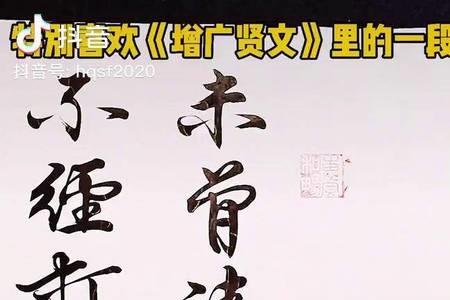 特别喜欢《增广贤文》里的一段
抖音
抖音号: hqsf2020
未曾清
不经打